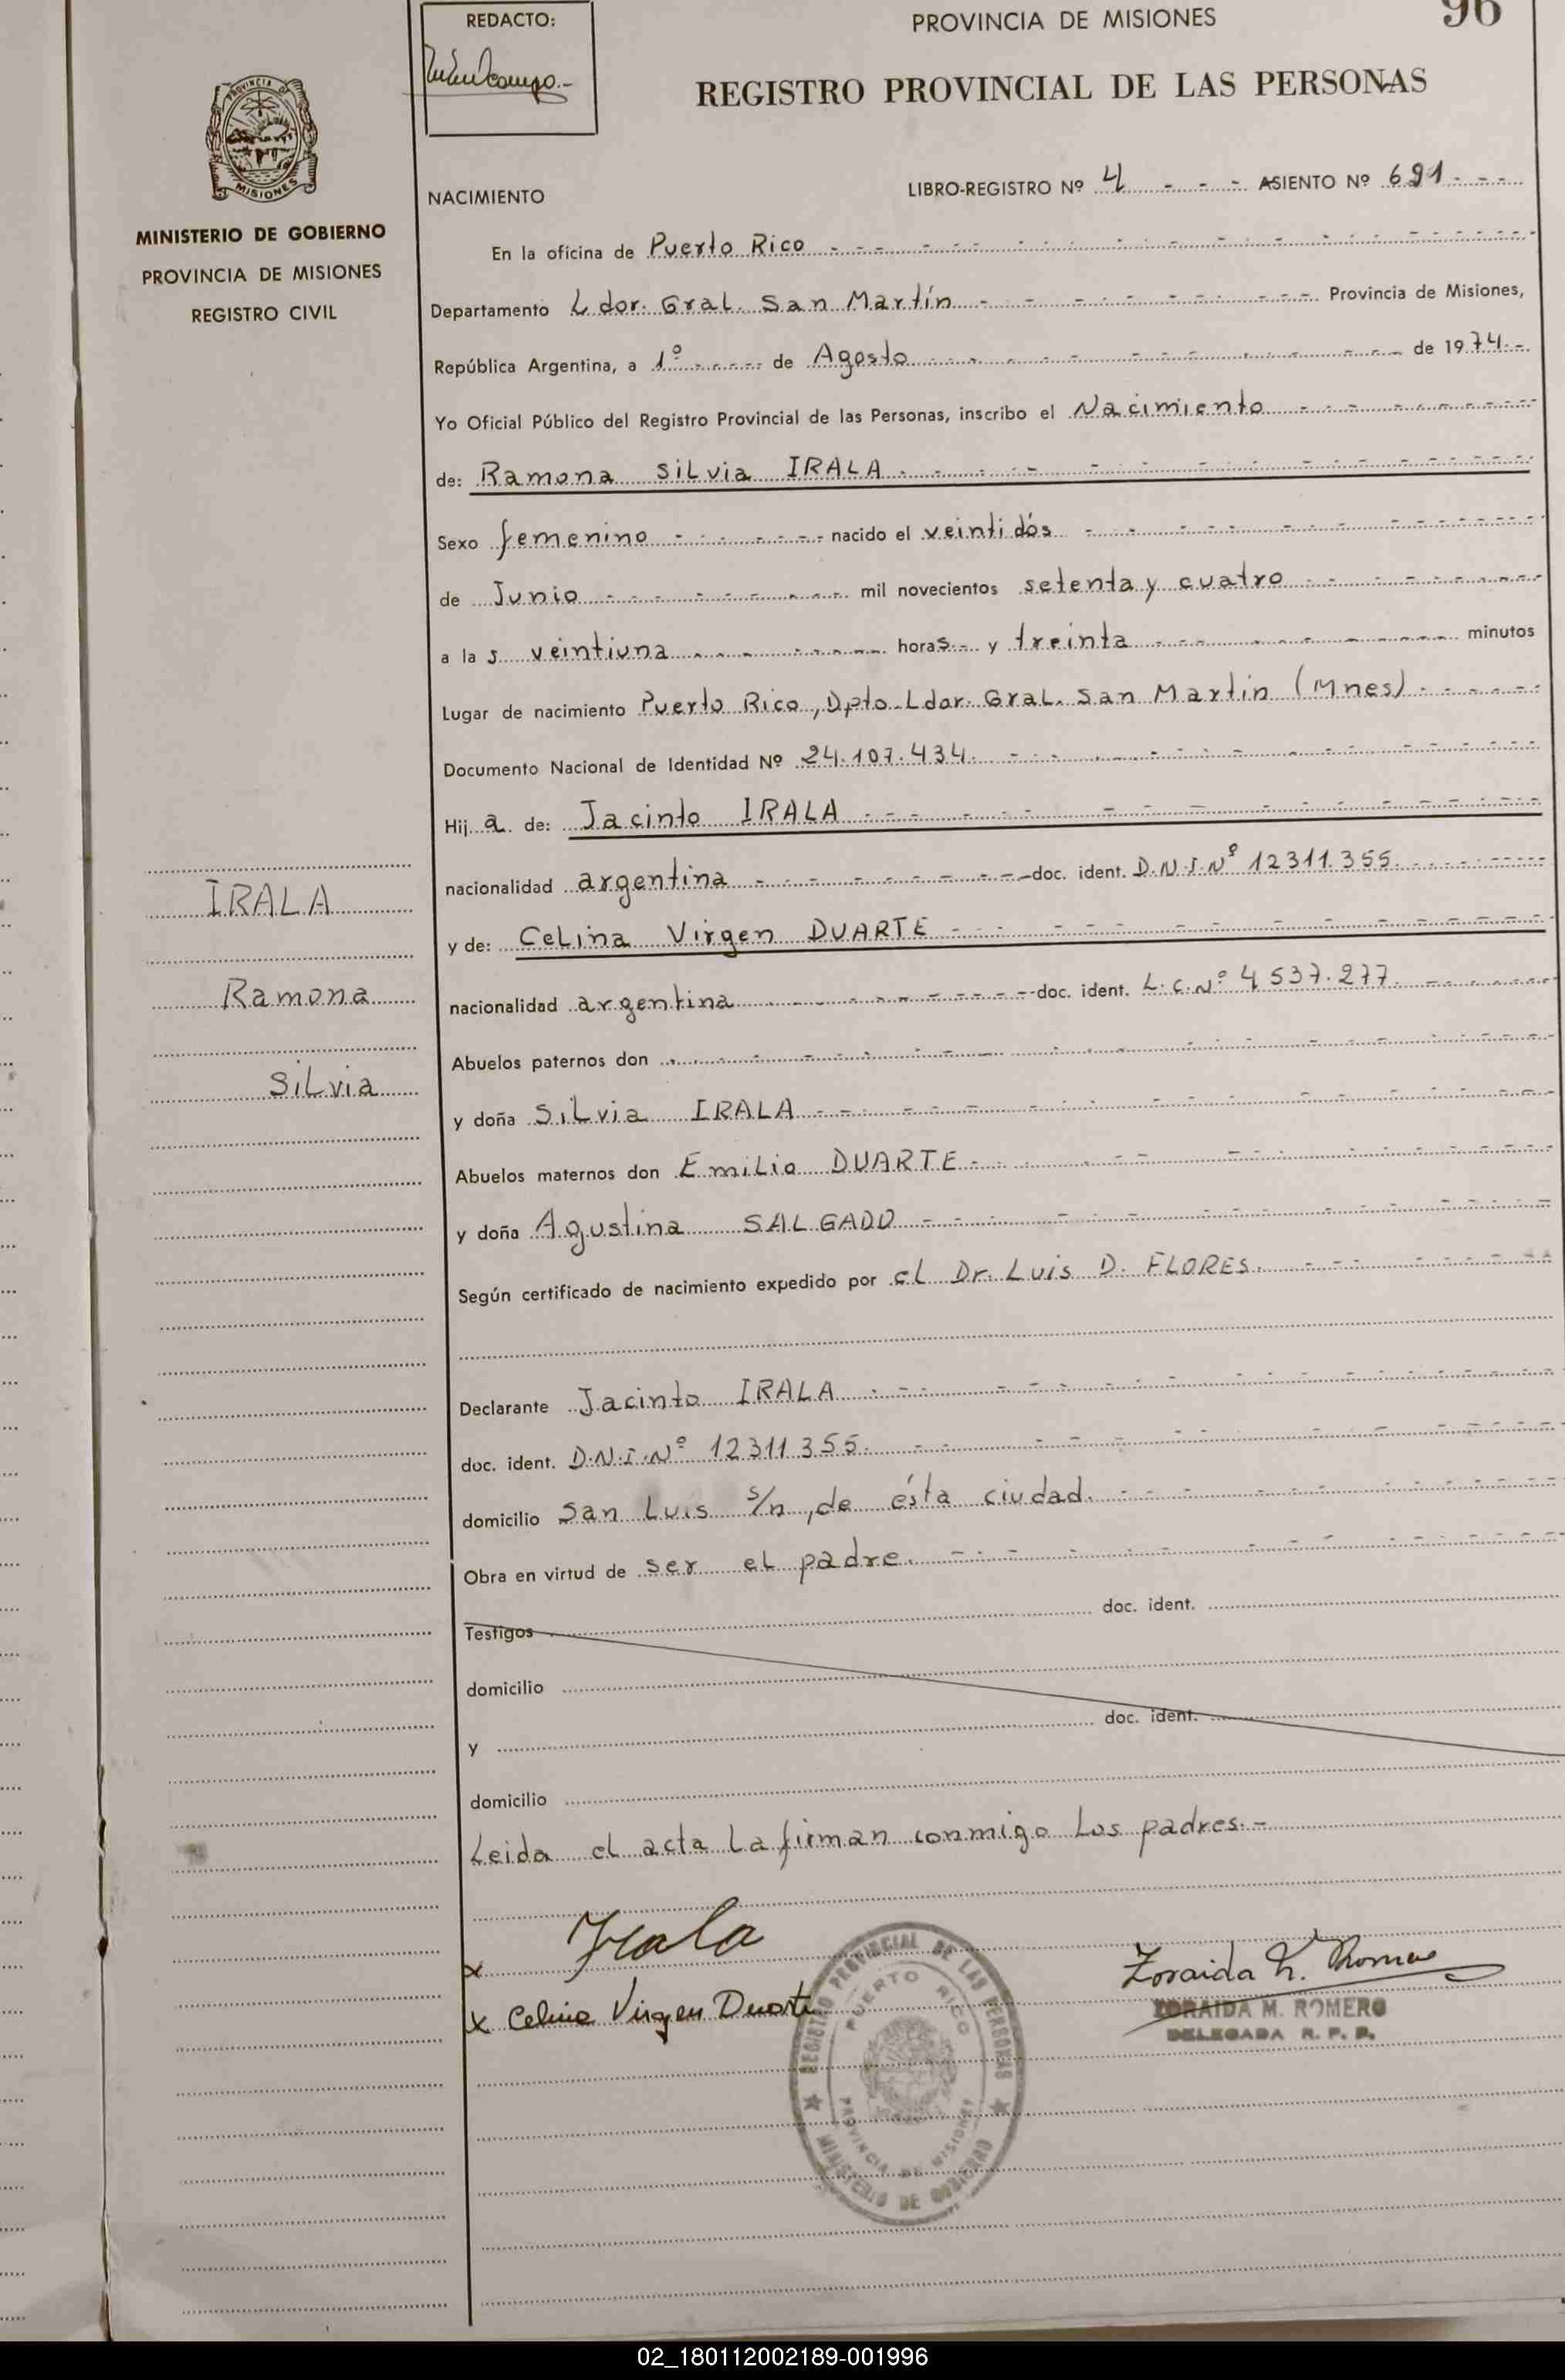 REDACTO:
PROVINCIA DE MISIONES
96
REGISTRO PROVINCIAL DE LAS PERSONAS
PROVINCIA DE
MISIONES
MINISTERIO DE GOBIERNO
PROVINCIA DE MISIONES
REGISTRO CIVIL
NACIMIENTO
LIBRO-REGISTRO Nº 4 - - - ASIENTO Nº 691 - - -
En la oficina de Puerto Rico
Departamento Ldor. Gral. San Martín Provincia de Misiones,
República Argentina, a 1º de Agosto de 1974.-
Yo Oficial Público del Registro Provincial de las Personas, inscribo el Nacimiento
de: Ramona Silvia IRALA
Sexo femenino nacido el veintidós
de Junio mil novecientos setenta y cuatro
a las veintiuna horas y treinta minutos
Lugar de nacimiento Puerto Rico, Dpto. Ldor. Gral. San Martín (Mnes)
Documento Nacional de Identidad Nº 24.107.434.
Hija de: Jacinto IRALA
nacionalidad argentina doc. ident. D.N.I.Nº 12311.355.
IRALA
y de: Celina Virgen DUARTE
Ramona
nacionalidad argentina doc. ident. L.C.Nº 4537.277.
Abuelos paternos don
Silvia
y doña Silvia IRALA
Abuelos maternos don Emilio DUARTE
y doña Agustina SALGADO
Según certificado de nacimiento expedido por el Dr. Luis D. FLORES.
Declarante Jacinto IRALA
doc. ident. D.N.I.Nº 12311355.
domicilio San Luis s/n, de ésta ciudad.
Obra en virtud de ser el padre.
Testigos doc. ident.
domicilio
y doc. ident.
domicilio
Leida el acta la firman conmigo los padres.-
x Irala
x Celina Virgen Duarte
REGISTRO PROVINCIAL DE LAS PERSONAS
PUERTO RICO
PROVINCIA DE MISIONES
MINISTERIO DE GOBIERNO
Zoraida M. Romero
ZORAIDA M. ROMERO
DELEGADA R. P. P.
02_180112002189-001996